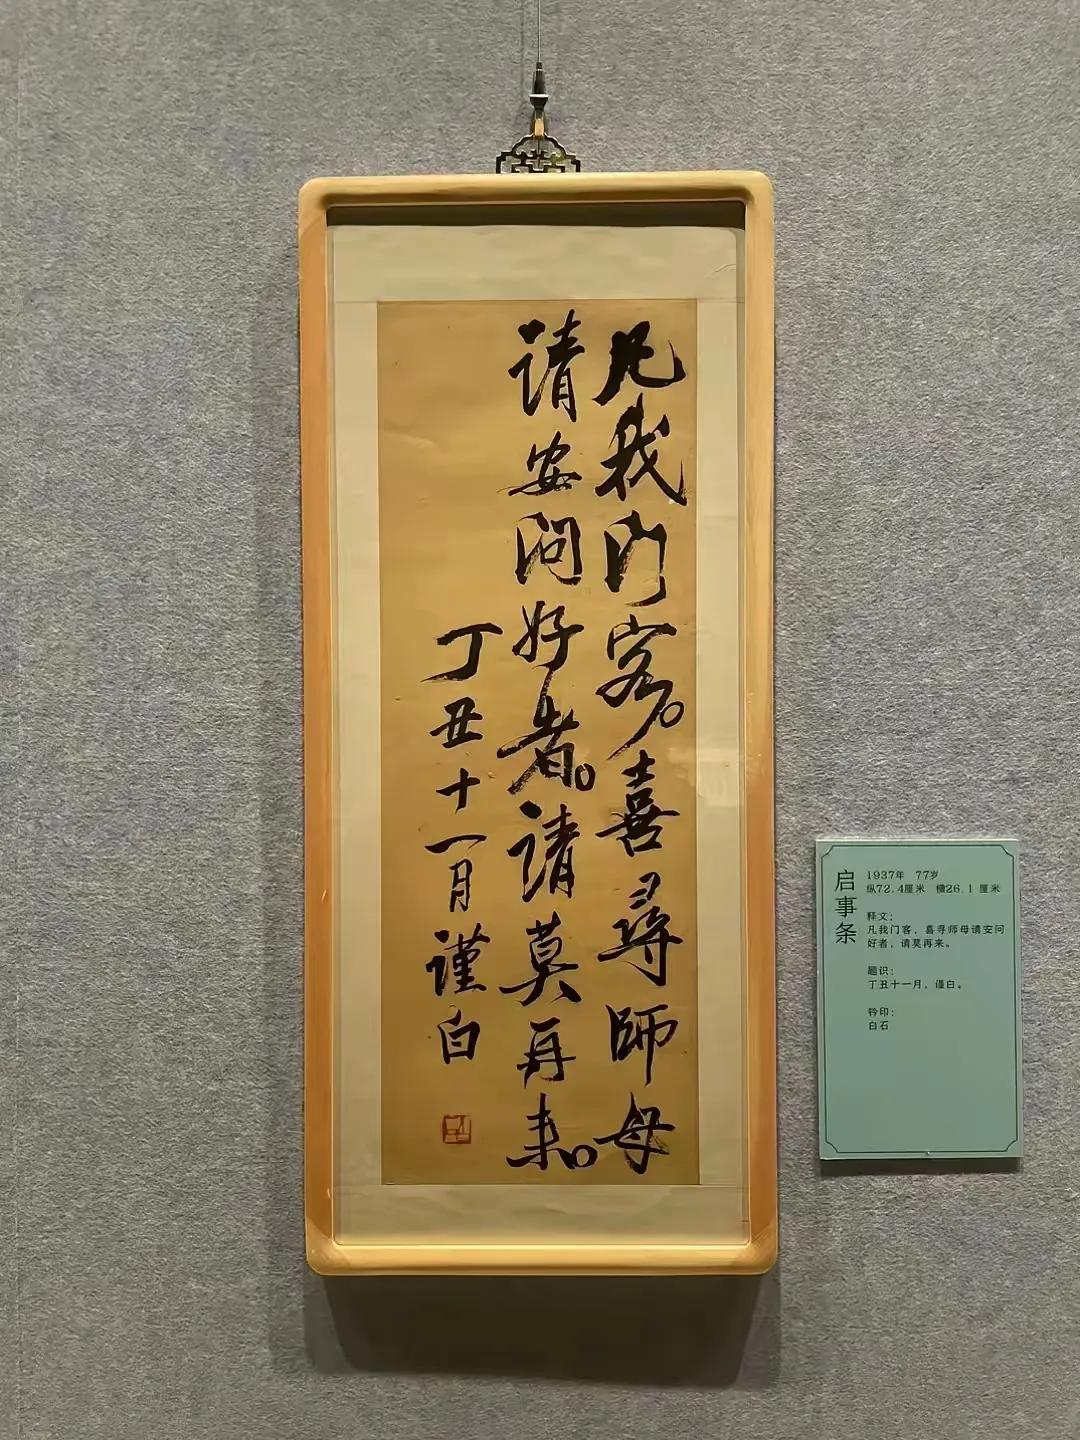 凡我门客。喜尋師母
请安问好者。请莫再来。
丁丑十一月谨白
白石
启事条
1937年 77岁
纵72.4厘米 横26.1 厘米
释文：
凡我门客，喜寻师母请安问
好者，请莫再来。
题识：
丁丑十一月，谨白。
钤印：
白石